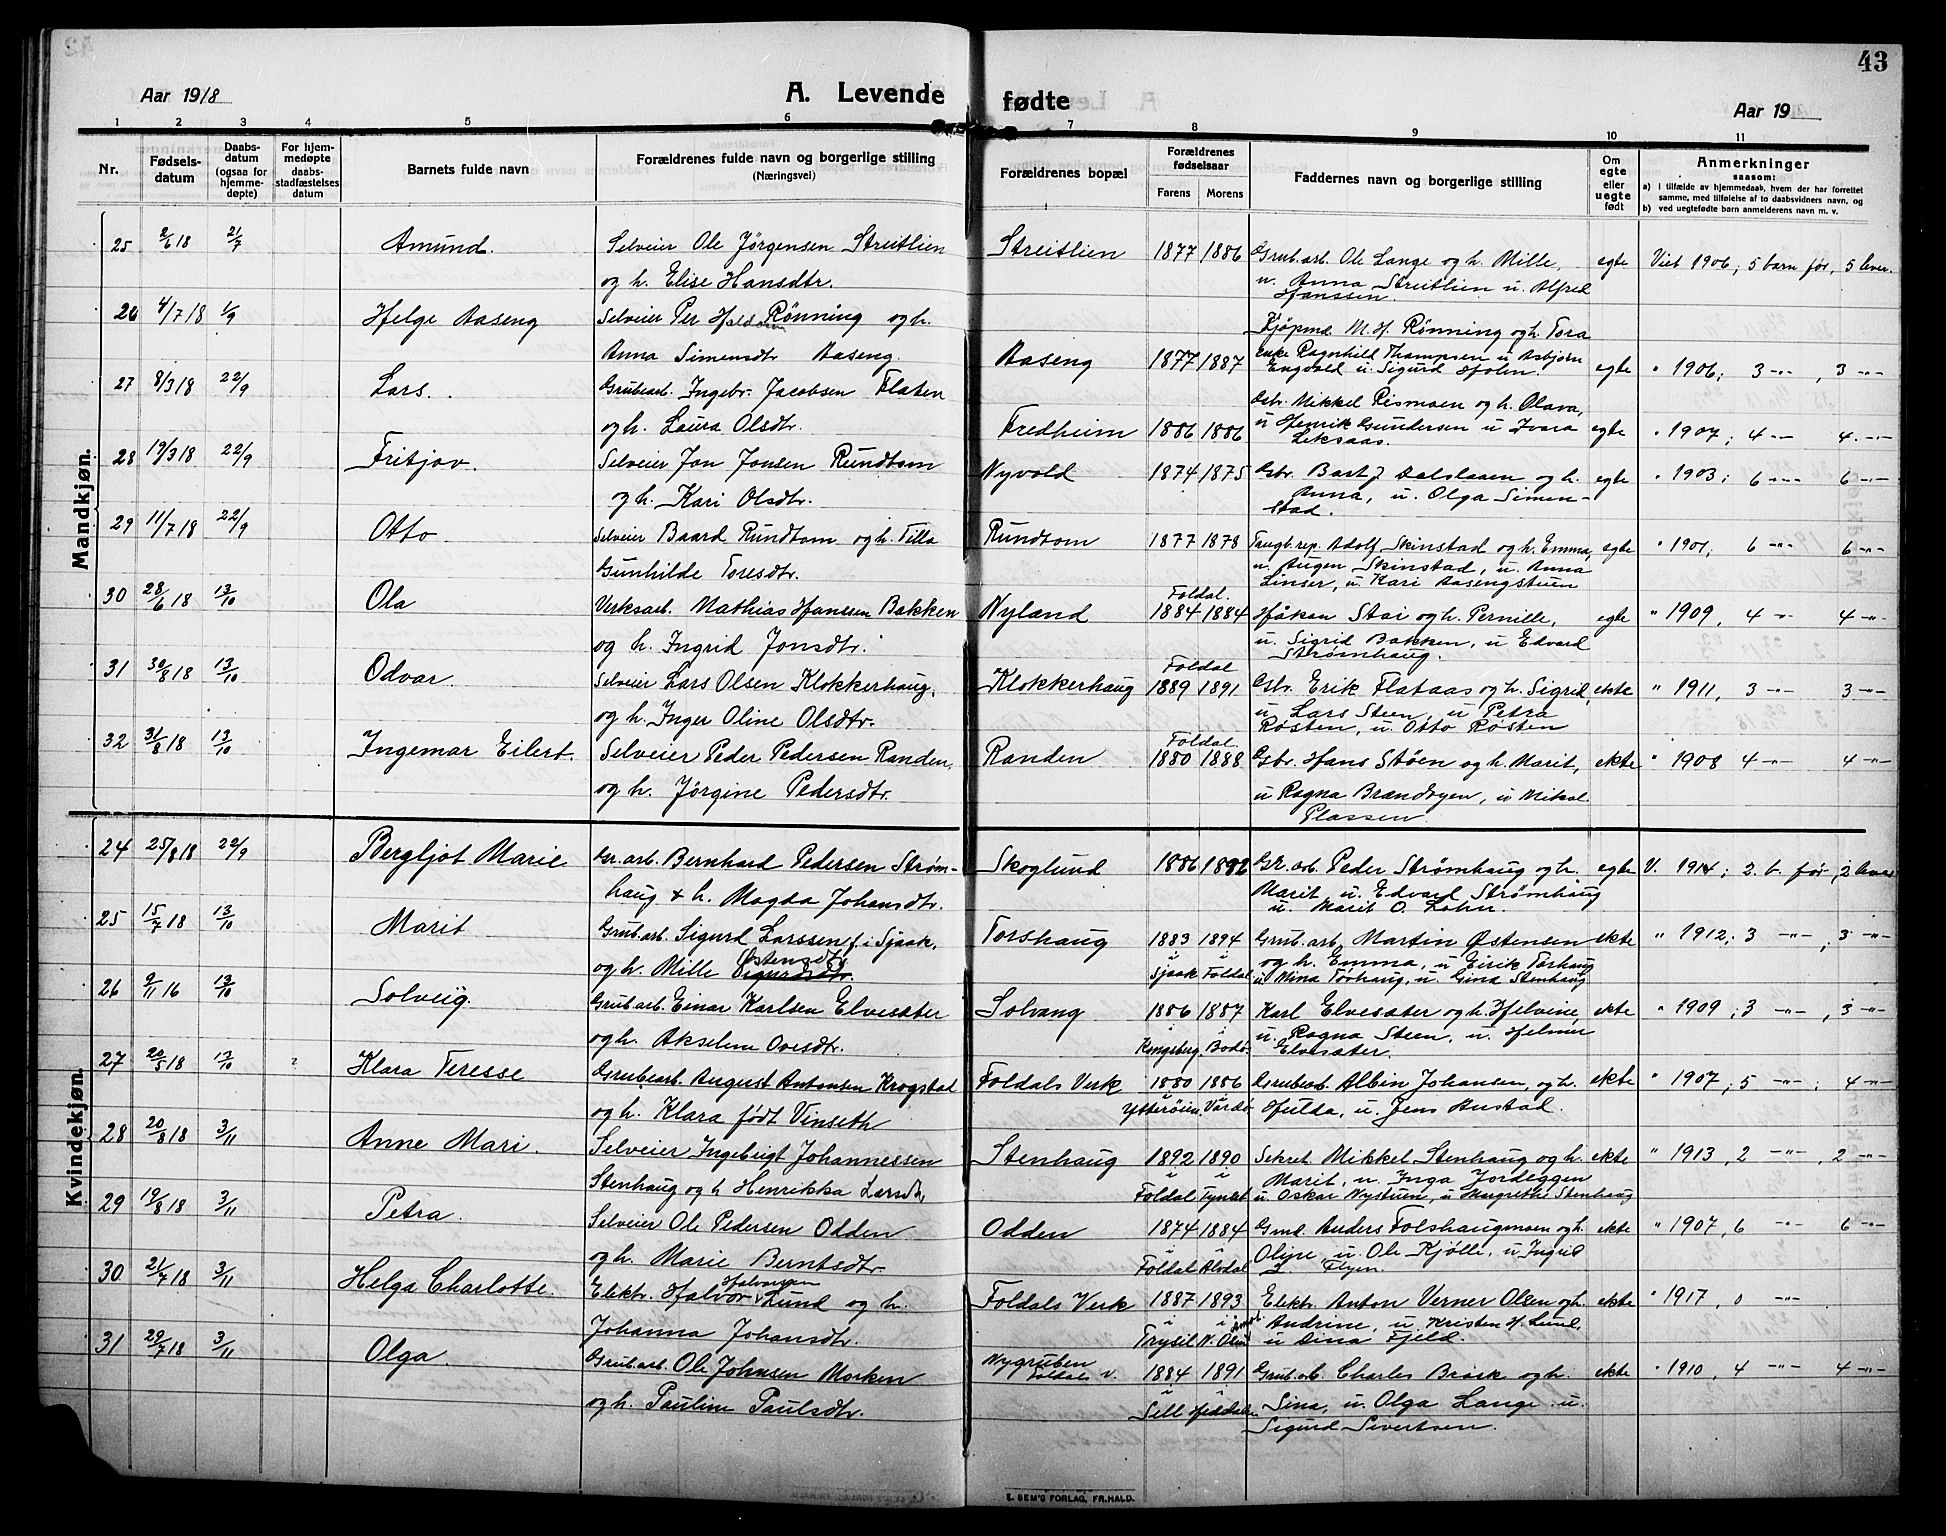 43
Aar 1918 A. Levende fødte Aar 19
1 2 3 4 5 6 7 8 9 10 11
Nr. Fødsels-datum Daabs-datum (ogsaa for hjemme-døpte) For hjem-medøpte daabs-stadfæstelses datum Barnets fulde navn Forældrenes fulde navn og borgerlige stilling (Næringsvei) Forældrenes bopæl Forældrenes fødselsaar Farens Morens Faddernes navn og borgerlige stilling Om egte eller uegte født Anmerkninger saasom:
a) i tilfælde av hjemmedaab, hvem der har forrettet samme, med tilføielse af to daabsvidners navn, og
b) ved uegtefødte børn anmelderens navn m. v.
Mandkjøn.
25 2/6 18 21/7 Amund. Selveier Ole Jörgensen Streitlien Streitlien 1877 1886 Grub.arb. Ole Lange og h. Mille, egte Viet 1906; 5 barn før, 5 lever.
og h. Elise Hansdtr. u. Anna Streitlien u. Alfred
Hanssen.
26 4/7 18 1/9 Helge Aaseng Selveier Per Rønning og h. Kjöpmd. M. H. Rönning og h. Tora
Anna Simensdtr Aaseng. Aaseng 1877 1887 enke Ragnhild Thampsen u Asbjørn egte " 1906; 3 -"- , 3 -"-
Engvold u. Sigurd Holen.
27 8/3 18 22/9 Lars. Grubearb. Ingebr. Jacobsen Flaten Gbr. Mikkel Rismoen og h. Olava,
og h. Laura Olsdtr. Fredheim 1886 1886 u Henrik Gundersen u Ivara egte " 1907; 4 -"- 4 -"-
Leksaas.
28 19/3 18 22/9 Fritjov. Selveier Jon Jonsen Rundtom Nyvold 1874 1875 Gbr. Bart J Dalslaaen og h. egte " 1903; 6 -"- 6 -"-
og h. Kari Olsdtr. Anna, u. Olga Simen-
stad.
29 11/7 18 22/9 Otto Selveier Baard Rundtom og h. Tilla Rundtom 1877 1878 Adolf Skinstad og h. Emma, egte " 1901; 6 -"- 6 -"-
Gunhilde Toresdtr. u. Augen Skinstad, u. Anna
Linser, u. Kari Aasengstuen
30 28/6 18 13/10 Ola Verksarb. Mathias Hanssen Bakken Nyland Foldal. 1884 1884 Håkon Stai og h. Pernille, egte " 1909, 4 -"- 4 -"-
og h. Ingrid Jonsdtr. u. Sigrid Bakken, u Edvard
Strømhaug.
31 30/8 18 13/10 Odvar. Selveier Lars Olsen Klokkerhaug, Klokkerhaug Foldal 1889 1891 Gbr. Erik Flataas og h. Sigrid, ekte " 1911, 3 -"- 3 -"-
og h. Inger Oline Olsdtr. u Lars Steen, u Petra
Røsten, u. Otto Røsten
32 31/8 18 13/10 Ingemar Eilert. Selveier Peder Pedersen Randen, Randen Foldal. 1880 1888 Gbr. Hans Stöen og h. Marit, ekte " 1908 4 -"- 4 -"-
og h. Jørgine Pedersdtr. u Ragna Brændvyen, u Mikal
Plassen.
Kvindekjøn.
24 25/8 18 22/9 Bergljot Marie Gr. arb. Bernhard Pedersen Strøm- Skoglund 1886 1892 Gr. arb Peder Strømhaug og h. egte V. 1914; 2 b. før, 2 lever
haug & h. Magda Johansdtr. Marit u. Edvard Strømhaug
u. Marit O. Lohn.
25 15/7 18 13/10 Marit Grub.arb. Sigurd Larssen f. i Sjaak, Torshaug 1883 1894 Grub.arb. Martin Østensen ekte " 1912; 3 -"- ; 3 -"-
og h. Mille Østensdtr. Sigurdsdtr. i Sjaak i Foldal og h. Emma, u. Eirik Torhaug
u Mina Torhaug, u. Gina Stenhaug
26 9/11 16 13/10 Solveig. Grub.arb. Einar Karlsen Elvesæter Solvang 1886 1887 Karl Elvesæter og h. Helvine, ekte " 1909; 3 -"- , 3 -"-
og h. Akseline Ovesdtr. i Kongsberg. i Bodø. u. Ragna Steen, u. Helmer
Elvesæter.
27 20/5 18 13/10 Klara Teresse Grubearb. August Antonsen Krogstad Foldals Verk 1880 1886 Grubearb. Albin Johansen, og h. ekte " 1907; 5 -"- ; 4 -"-
og h. Klara født Vinseth Ytterøien. Vardø. Hulda, u. Jens Austad.
28 20/8 18 3/11 Anne Mari. Selveier Ingebrigt Johannessen Stenhaug 1892 1890 Sekret. Mikkel Stenhaug og h. ekte " 1913, 2 -"- , 2 -"-
Stenhaug og h Henrikka Larsdtr i Foldal i Tynset Marit, u. Inga Jordeggen
u Oskar Nystuen, u Margrethe Stenhaug
29 19/8 18 3/11 Petra. Selveier Ole Pedersen Odden Odden 1874 1884 Gmd. Anders Folshaugmoen og h. ekte " 1907, 6 -"- 6 -"-
og h. Marie Berntsdtr. i Foldal i Alvdal Oline u. Ole Kjølle, u Ingrid
Flyen.
30 21/7 18 3/11 Helga Charlotte. Elektr. Halvor Halvorsen Lund og h. Foldals Verk 1887 1893 Elektr. Anton Verner Olsen og h. ekte " 1917, 0 -"-
Johanna Johansdtr. i Trysil Andrine, u. Kristen H. Lund,
u Dina Fjeld.
31 29/7 18 3/11 Olga. Grub.arb. Ole Johnsen Morken Nygruben Foldals v. 1884 1891 Grub.arb. Charles Brisk og h. ekte " 1910, 4 -"- 4 -"-
og h. Pauline Paulsdtr. i Sell i Heddalen Sina, u. Olga Lange u.
Sigurd Sivertsen.
E. SEM'S FORLAG, FR.HALD.